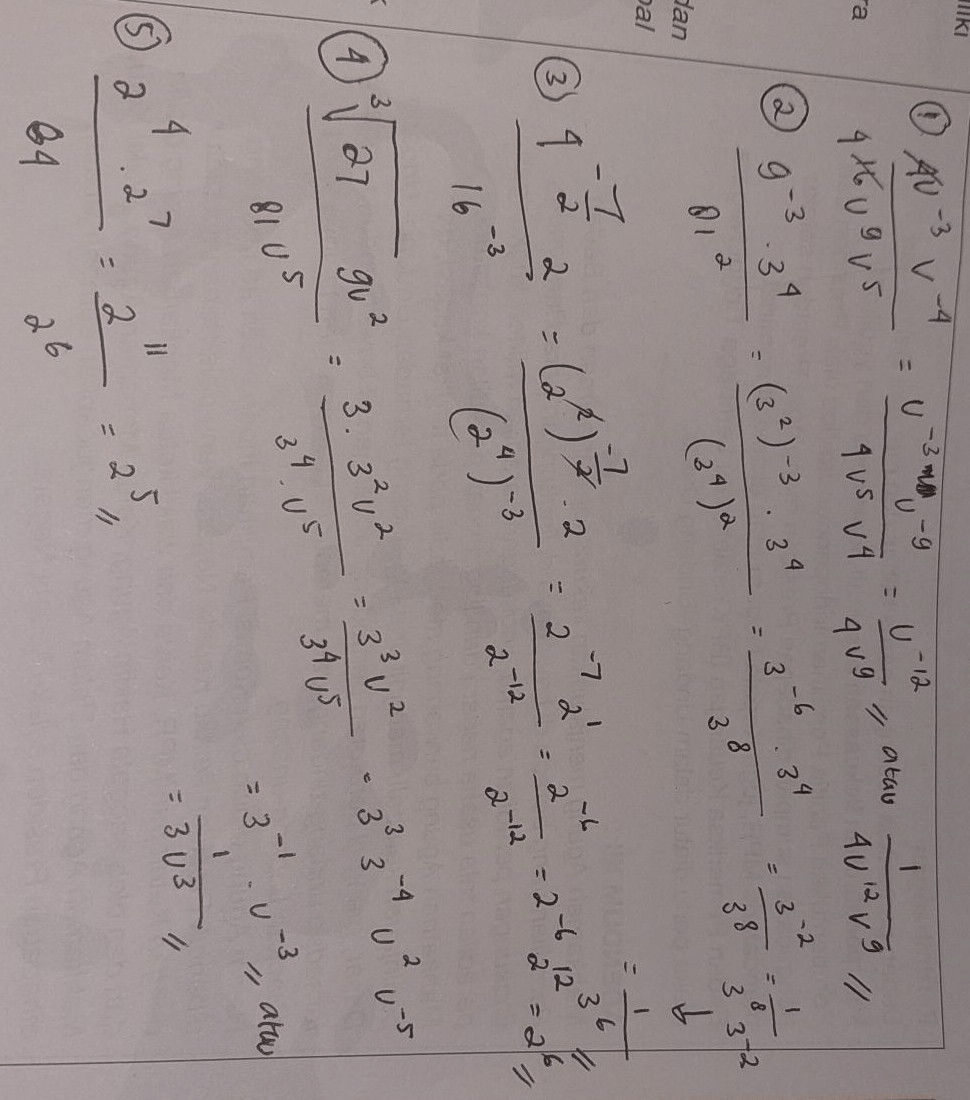 iliki
ra
dan
pal
① 4U⁻³ V⁻⁴ / 4 16 U⁹ V⁵ = U⁻³ U⁻⁹ / 4 V⁵ V⁴ = U⁻¹² / 4V⁹ // atau 1 / 4U¹² V⁹ //
② 9⁻³ . 3⁴ / 81² = (3²)⁻³ . 3⁴ / (3⁴)² = 3⁻⁶ . 3⁴ / 3⁸ = 3⁻² / 3⁸ = 1 / 3⁸ 3⁻²
↓
= 1 / 3⁶ //
③ 4^(-7/2) 2 / 16⁻³ = (2²)^(-7/2) . 2 / (2⁴)⁻³ = 2⁻⁷ 2¹ / 2⁻¹² = 2⁻⁶ / 2⁻¹² = 2⁻⁶ 2¹² = 2⁶ //
④ ³√27 9V² / 81 V⁵ = 3 . 3² V² / 3⁴ . V⁵ = 3³ V² / 3⁴ V⁵ = 3³ 3⁻⁴ V² V⁻⁵
= 3⁻¹ . V⁻³ // atau
= 1 / 3V³ //
⑤ 2⁴ . 2⁷ / 64 = 2¹¹ / 2⁶ = 2⁵ //